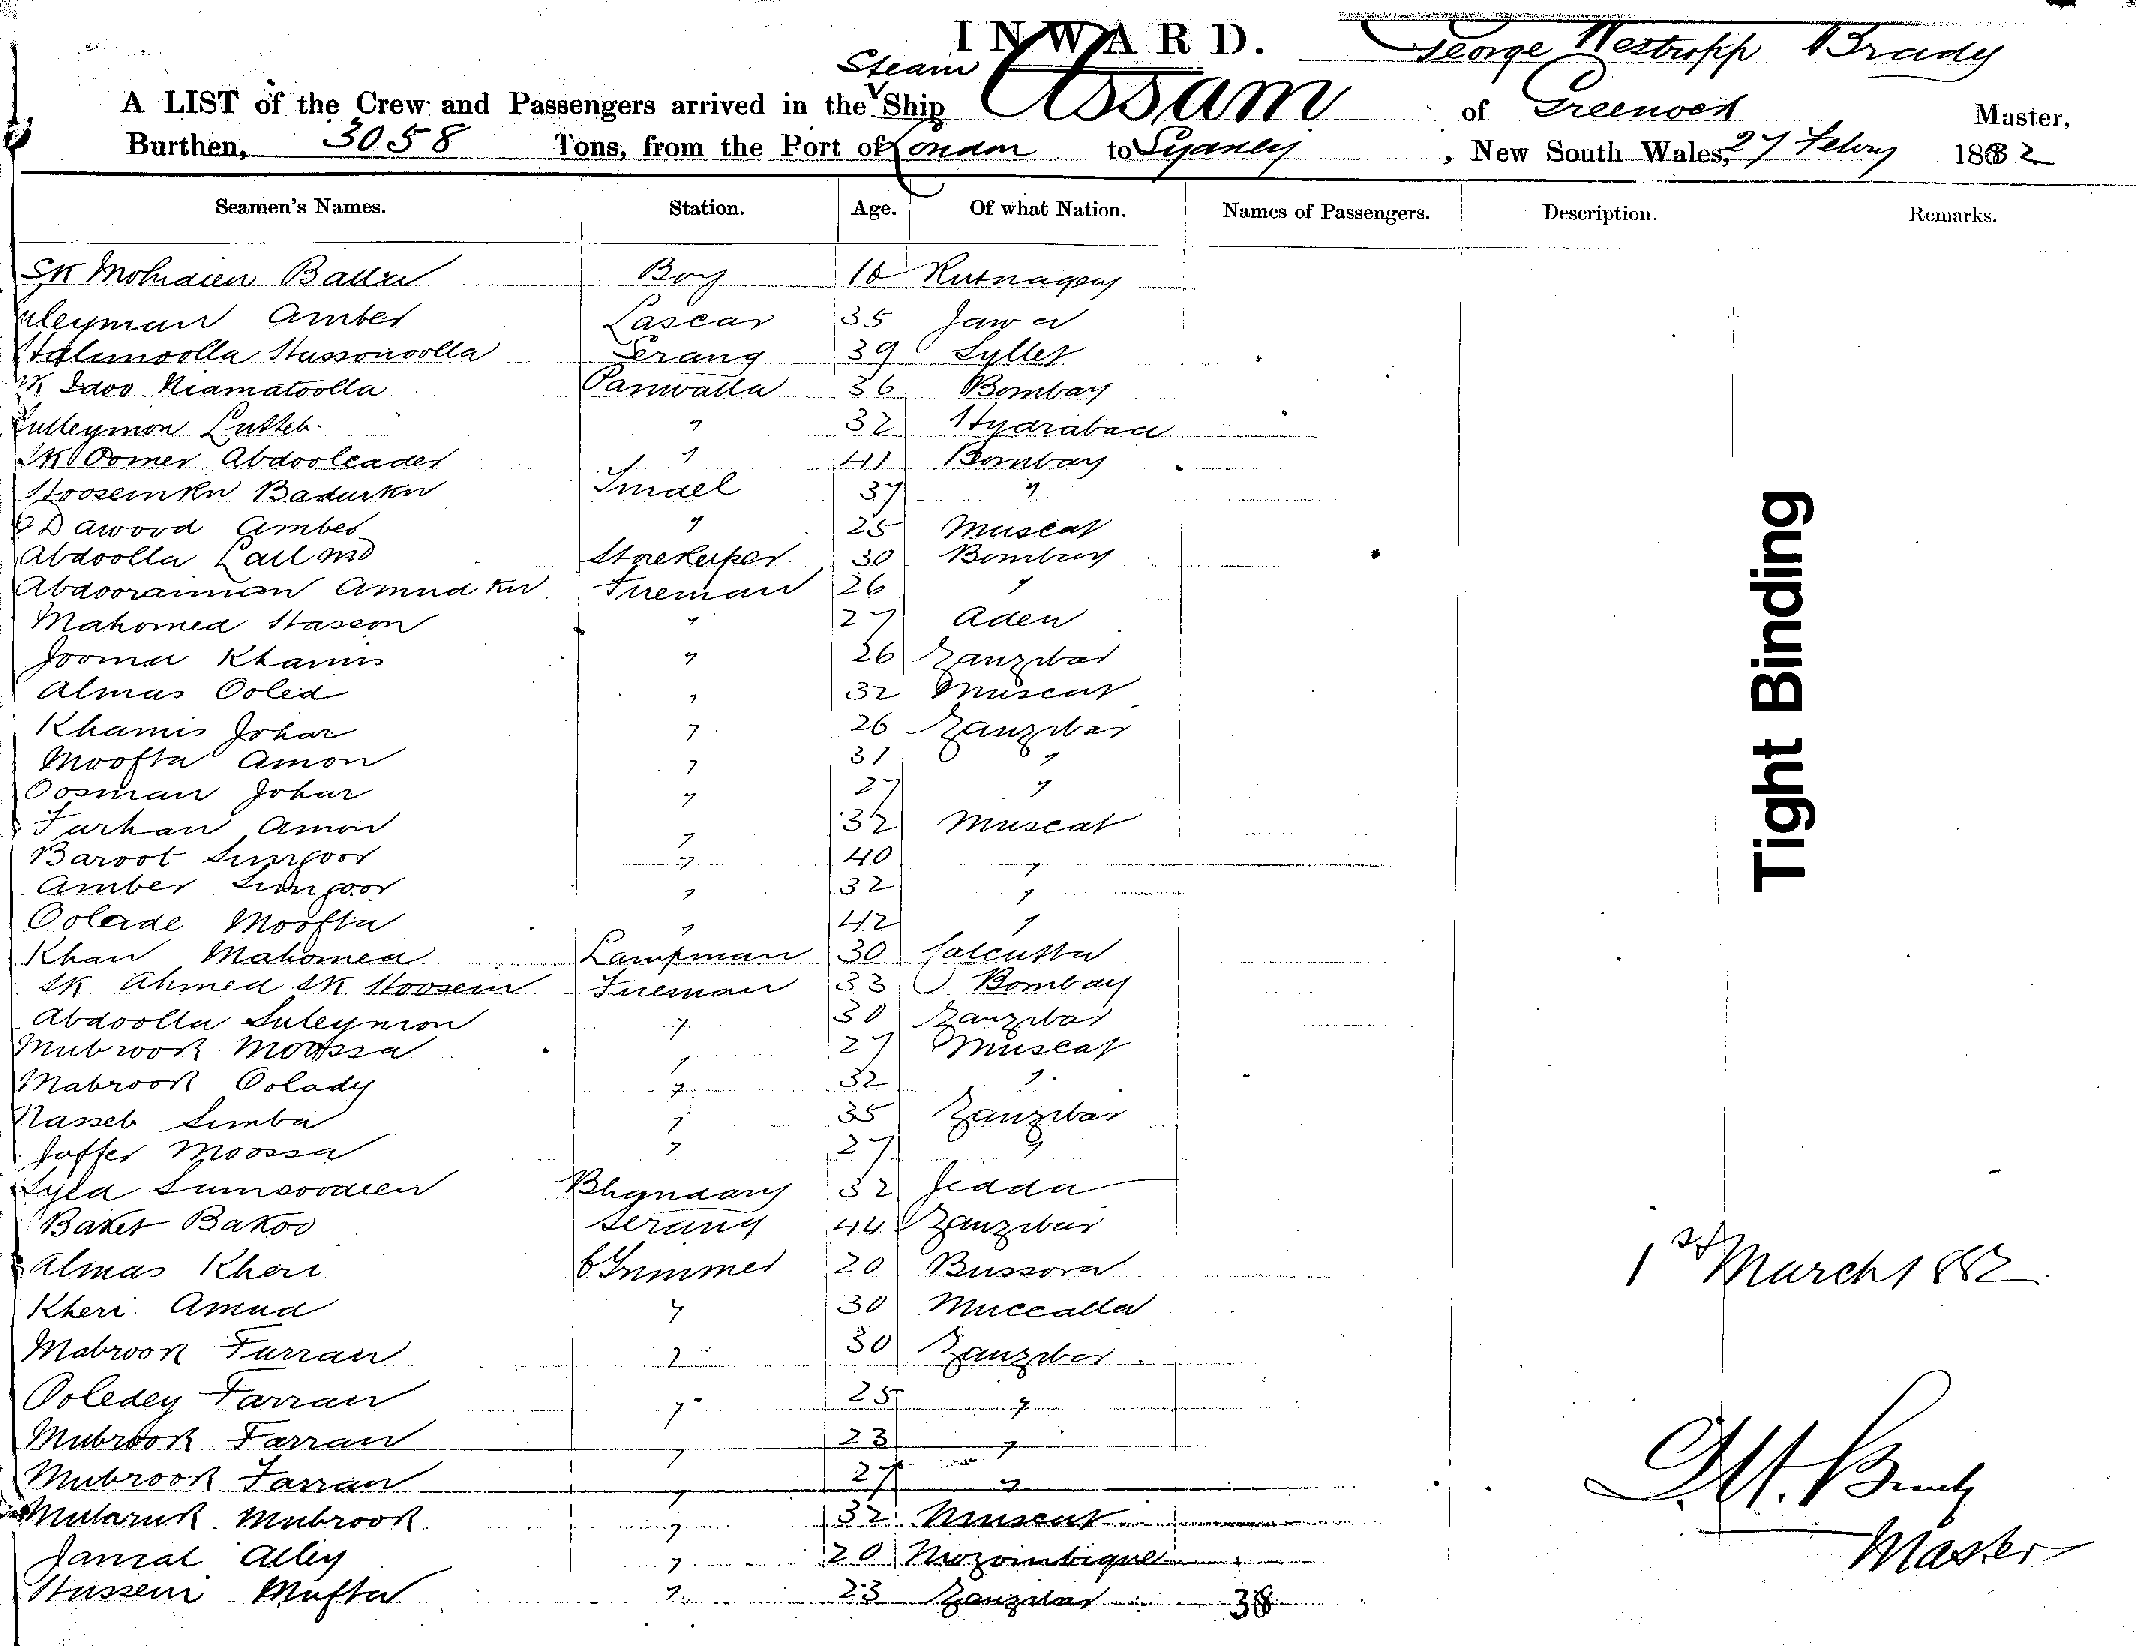 INWARD. George Westropp Brady
A LIST of the Crew and Passengers arrived in the Steam Ship Assam of Greenock Master,
Burthen, 3058 Tons, from the Port of London to Sydney, New South Wales, 27 Febry 1882
Seamen's Names. Station. Age. Of what Nation. Names of Passengers. Description. Remarks.
SK Mohidien Boy 16 Rutnagery
Suleyman Amber Lascar 35 Jawa
Halimoolla Hussonoolla Serang 39 Syllet
SK Idoo Niamatoolla Paniwalla 36 Bombay
Sulleymon " 32 Hydrabad
SK Oomer Abdooleader " 41 Bombay
Hooseinkn Badurkn Tindel 37 "
Dawood Amber " 25 Muscat
Abdoolla Lall Md Storekeeper 30 Bombay
Abdooraimon Amudkn Fireman 26 "
Mahomed Hasson " 27 Aden
Jooma Khamis " 26 Zanzibar
Almas Ooled " 32 Muscat
Khamis Johar " 26 Zanzibar
Moofta Amon " 31 "
Oosman Johar " 27 "
Furhan Amon " 32 Muscat
Baroot Sungoor " 40 "
Amber Sungoor " 32 "
Oolade Moofta " 42 "
Khan Mahomed Lampman 30 Calcutta
SK Ahmed SK Hoosein Fireman 33 Bombay
Abdoolla Suleymon " 30 Zanzibar
Mubrook Moossa " 27 Muscat
Mabrook Oolady " 32 "
Nasseb Simba " 35 Zanzibar
Joffer Moossa " 27 "
Syed Sumsoodeen Bhandary 32 Jedda
Baket Bakoo Serang 44 Zanzibar
Almas Kheri C Trimmer 20 Bussora
Kheri Amud " 30 Muccalla
Mabrook Furran " 30 Zanzibar
Ooledey Farran " 25 "
Mubrook Farran " 23 "
Mubrook Farran " 27 "
Mubaruk Mubrook " 32 Muscat
Jansal Alley " 20 Mozombique
Hussein Mufta " 23 Zanzibar 38
Tight Binding
1st March 1882
G.W. Brady
Master